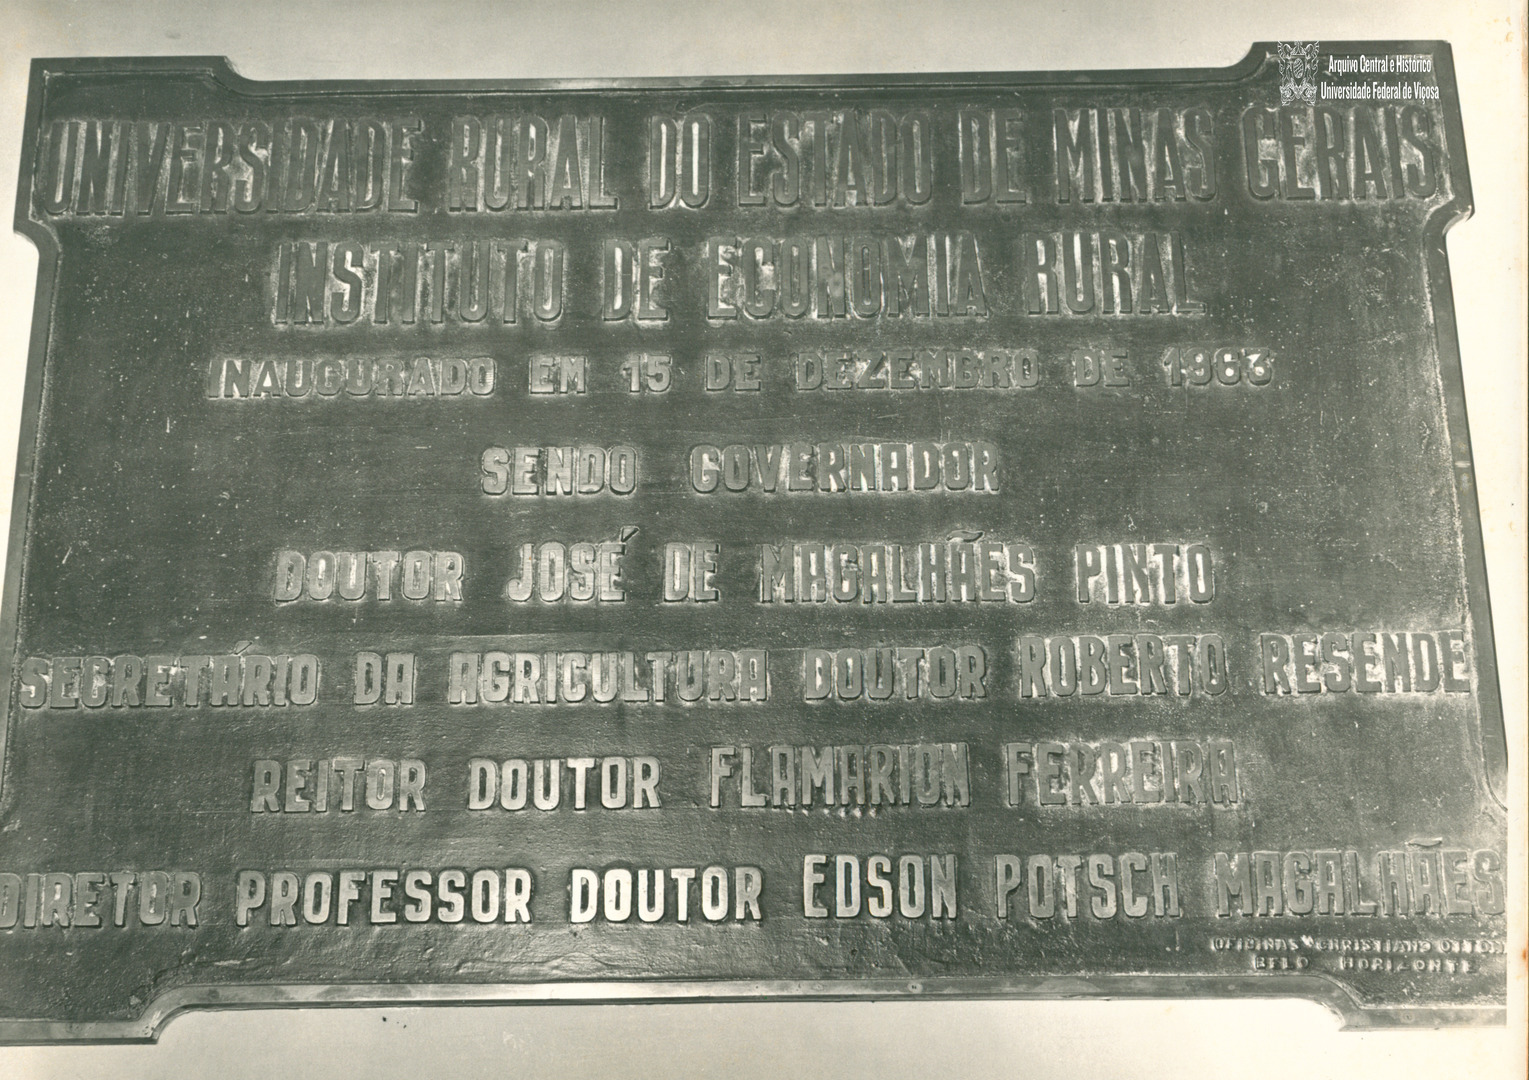 Arquivo Central e Histórico
Universidade Federal de Viçosa
UNIVERSIDADE RURAL DO ESTADO DE MINAS GERAIS
INSTITUTO DE ECONOMIA RURAL
INAUGURADO EM 15 DE DEZEMBRO DE 1963
SENDO GOVERNADOR
DOUTOR JOSÉ DE MAGALHÃES PINTO
SECRETÁRIO DA AGRICULTURA DOUTOR ROBERTO RESENDE
REITOR DOUTOR FLAMARION FERREIRA
DIRETOR PROFESSOR DOUTOR EDSON POTSCH MAGALHÃES
OFICINAS CHRISTIANO OTTONI
BELO HORIZONTE